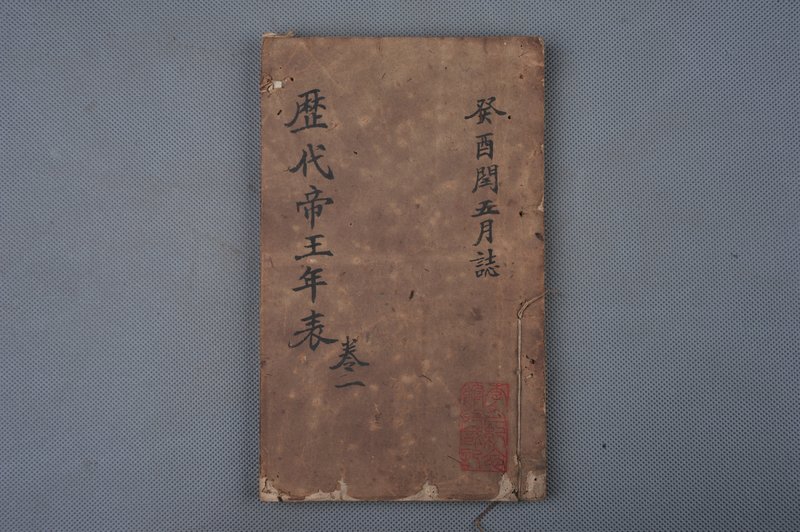 癸酉閏五月誌
歷代帝王年表
卷一